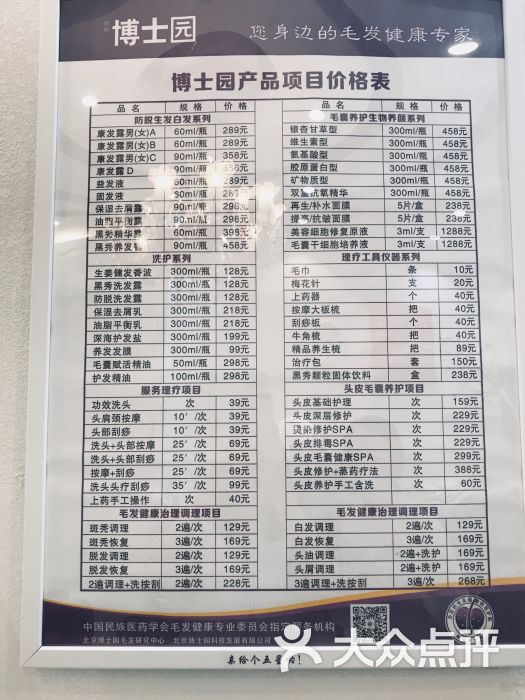 博士园
您身边的毛发健康专家
博士园产品项目价格表
品名 规格 价格
防脱生发白发系列
康发露男(女)A 60ml/瓶 289元
康发露男(女)B 60ml/瓶 289元
康发露男(女)C 90ml/瓶 358元
康发露D 60ml/瓶 289元
益发液 60ml/瓶 389元
固发液 90ml/瓶 289元
保湿去屑露 90ml/瓶 298元
油脂平衡露 90ml/瓶 298元
黑秀精华露 60ml/瓶 399元
黑秀养发 90ml/瓶 458元
洗护系列
生姜健发香波 300ml/瓶 128元
黑秀洗发露 300ml/瓶 128元
防脱洗发露 300ml/瓶 128元
保湿去屑乳 300ml/瓶 218元
油脂平衡乳 300ml/瓶 218元
深海护发盐 300ml/瓶 199元
养发发膜 300ml/瓶 99元
毛囊赋活精油 50ml/瓶 298元
护发精油 100ml/瓶 298元
服务理疗项目
功效洗头 次 39元
头肩颈按摩 10′/次 39元
头部刮痧 10′/次 39元
洗头+头部按摩 25′/次 69元
洗头+头部刮痧 25′/次 69元
按摩+刮痧 25′/次 69元
洗头头疗刮痧 35′/次 99元
上药手工操作 次 40元
毛发健康治理调理项目
斑秃调理 2遍/次 129元
斑秃恢复 3遍/次 169元
脱发调理 2遍/次 129元
脱发恢复 3遍/次 169元
2遍调理+洗按刮 2遍/次 228元
品名 规格 价格
毛囊养护生物养颜系列
银杏甘草型 300ml/瓶 458元
维生素型 300ml/瓶 458元
氨基酸型 300ml/瓶 458元
胶原蛋白型 300ml/瓶 458元
矿物质型 300ml/瓶 458元
双氢抗氧精华 300ml/瓶 458元
再生/补水面膜 5片/盒 238元
提亮/抗皱面膜 5片/盒 238元
美容细胞修复原液 3ml/支 1288元
毛囊干细胞培养液 3ml/支 1288元
理疗工具仪器系列
毛巾 条 10元
梅花针 支 20元
上药器 个 40元
按摩大板梳 把 40元
刮痧板 个 40元
牛角梳 把 40元
精品养生梳 把 89元
治疗包 套 150元
黑秀颗粒固体饮料 盒 238元
头皮毛囊养护项目
头皮基础护理 次 159元
头皮深层修护 次 229元
烫染修护SPA 次 229元
头皮排毒SPA 次 229元
头皮毛囊健康SPA 次 299元
头皮修护+蒸药疗法 次 388元
头皮养护手工含洗 次 60元
毛发健康治理调理项目
白发调理 2遍/次 129元
白发恢复 3遍/次 169元
头油调理 2遍+洗护 169元
头屑调理 2遍+洗护 169元
3遍调理+洗按刮 3遍/次 268元
中国民族医药学会毛发健康专业委员会指定服务机构
北京博士园毛发研究中心 北京博士园科技发展有限公司
大众点评
亲给个五星哟！